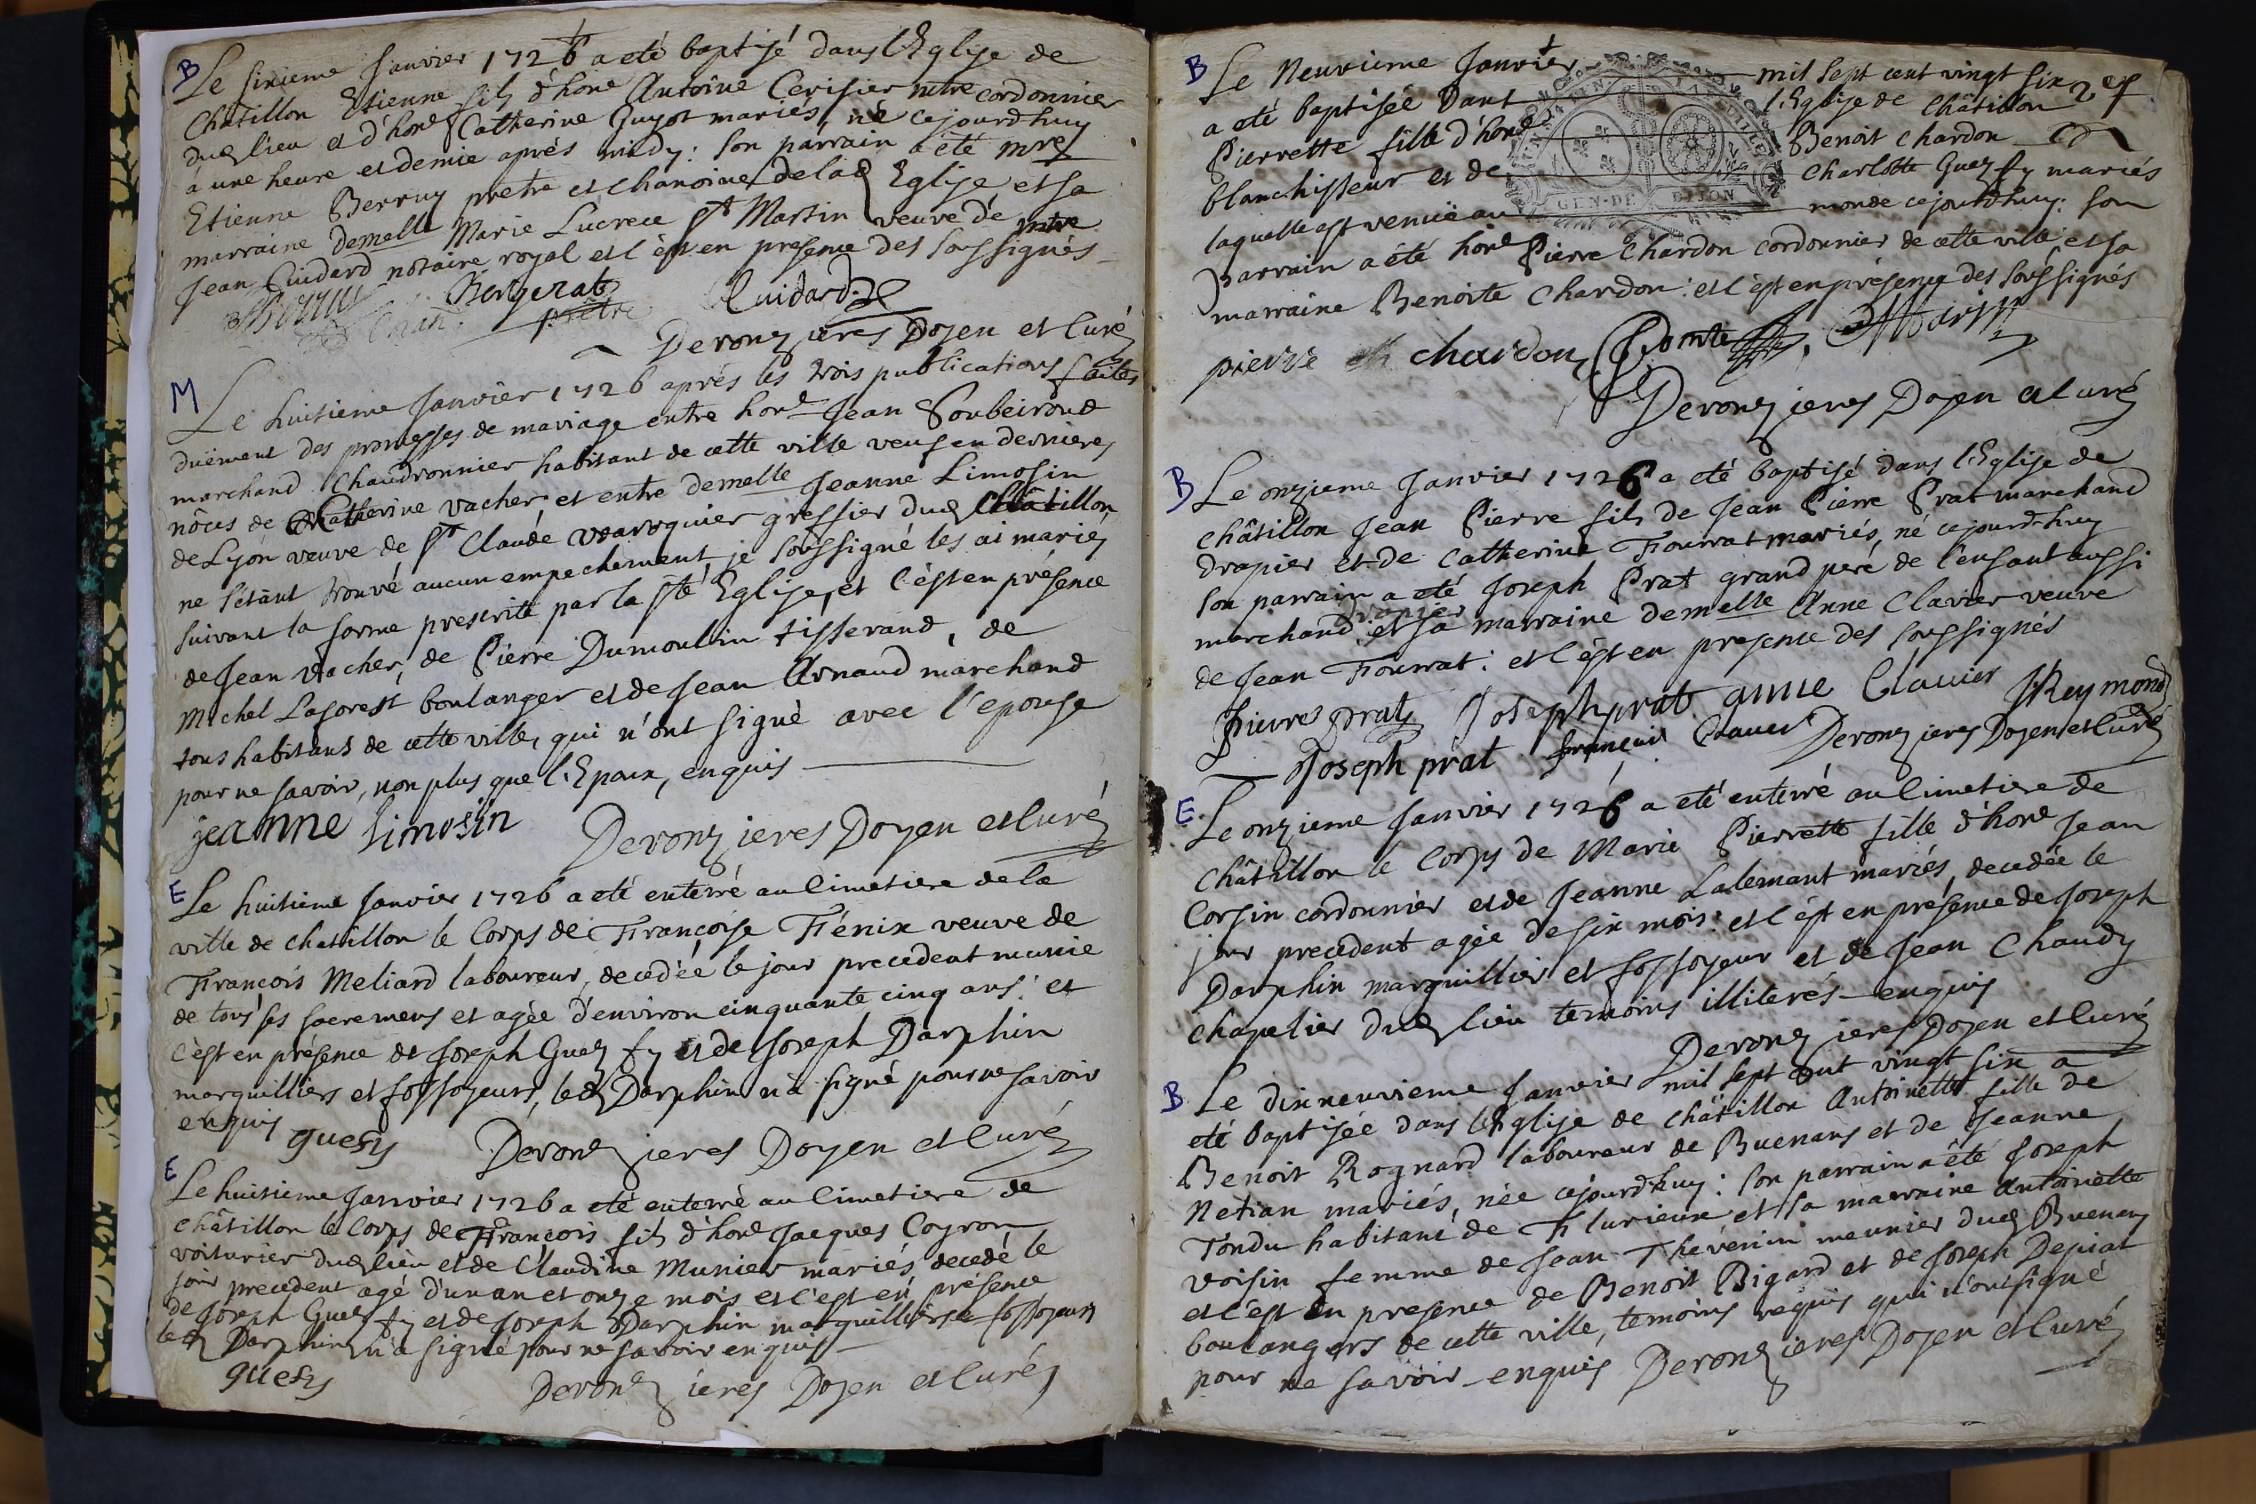 B Le sixieme Janvier 1726 a eté baptisé dans l'Eglise de
Châtillon Etienne fils d'hone Antoine Cerisier mtre cordonnier
dud lieu et d'hone Catherine Guyot mariés, né cejourd'huy
à une heure et demie aprés midy: son parrain a été mre
Etienne Berruy pretre et chanoine de lad Eglise et sa
marraine demelle Marie Lucrece St Martin veuve de mtre
Jean Cuidard notaire royal et c'est en presence des soussignés
Chan. Bergerat prêtre Cuidard
Deronzieres Doyen et Curé
M Le huitieme Janvier 1726 aprés les trois publications faites
duëment des promesses de mariage entre hone Jean Soubeirond
marchand Chaudronnier habitant de cette ville veuf en dernieres
nôces de Catherine vacher, et entre demelle Jeanne Limosin
de Lyon veuve de Sr Claude vuarquier greffier dud Châtillon
ne s'etant trouvé aucun empechement, je soussigné les ai mariés
suivant la forme prescrite par la Ste Eglise, et c'est en présence
de Jean vacher, de Pierre Dumoulin tisserand, de
Michel Laforest boulanger et de Jean Arnaud marchand
tous habitans de cette ville, qui n'ont signé avec l'epouse
pour ne savoir, non plus que l'Epoux, enquis
jeanne limosin Deronzieres Doyen et Curé
E Le huitieme Janvier 1726 a eté enterré au Cimetiere de la
ville de chatillon le Corps de Françoise Fénix veuve de
François Meliard laboureur, decedée le jour precedent munie
de tous ses sacremens et agée d'environ cinquante cinq ans: et
c'est en présence de Joseph Guezsy et de Joseph Darphin
marguilliers et fossoyeurs, led Darphin n'a signé pour ne savoir
enquis guesy Deronzieres Doyen et Curé
E Le huitieme Janvier 1726 a eté enterré au Cimetiere de
Châtillon le Corps de François fils d'hone Jacques Coyron
voiturier dud lieu et de Claudine Munier mariés decedé le
jour precedent agé d'un an et onze mois et c'est en présence
de Joseph Guezsy et de Joseph Darphin marguilliers et fossoyeurs
led Darphin n'a signé pour ne savoir enquis
guesy Deronzieres Doyen et Curé
B Le Neuvieme Janvier mil sept cent vingt six
a eté baptisée dans l'Eglise de Châtillon
Pierrette fille d'hone Benoit chardon
blanchisseur et de Charlotte Guezsy mariés
laquelle est venuë au monde cejourd'huy: son
GEN·DE DIJON
Parrain a été hone Pierre Chardon cordonnier de cette ville, et sa
marraine Benoite Chardon: et c'est en présence des soussignés
pierre chardon Comte
Deronzieres Doyen et Curé
B Le onzieme Janvier 1726 a eté baptisé dans l'Eglise de
châtillon Jean Pierre fils de Jean Pierre Prat marchand
drapier et de Catherine Fourrat mariés, né cejourd-huy
son parrain a eté Joseph Prat grand pere de l'enfant aussi
marchand drapier et sa marraine demelle Anne Clavier veuve
de Jean Fourrat: et c'est en presence des soussignés
pierre prat Joseph prat anne Clauier Reymond
Joseph prat françois Clauer Deronzieres Doyen et Curé
E Le onzieme Janvier 1726 a eté enterré au Cimetiere de
Châtillon le Corps de Marie Pierrette fille d'hone Jean
Corsin cordonnier et de Jeanne Lalemant mariés, decedée le
jour precedent agée de six mois: et c'est en présence de Joseph
Darphin marguillier et fossoyeur et de Jean Chaudy
chapelier dud lieu temoins illiterés enquis
Deronzieres Doyen et Curé
B Le dixneuvieme Janvier mil sept cent vingt six a
eté baptisée dans l'Eglise de châtillon Antoinette fille de
Benoit Rognard laboureur de Buenans et de Jeanne
Netian mariés, née cejourd'huy: son parrain a été Joseph
Tondu habitant de Flurieux et sa marraine Antoinette
voisin femme de Jean Thévenin meunier dud Buenans
et c'est en presence de Benoit Bigard et de Joseph Depiat
boulangers de cette ville, temoins requis qui n'ont signé
pour ne savoir enquis Deronzieres Doyen et Curé